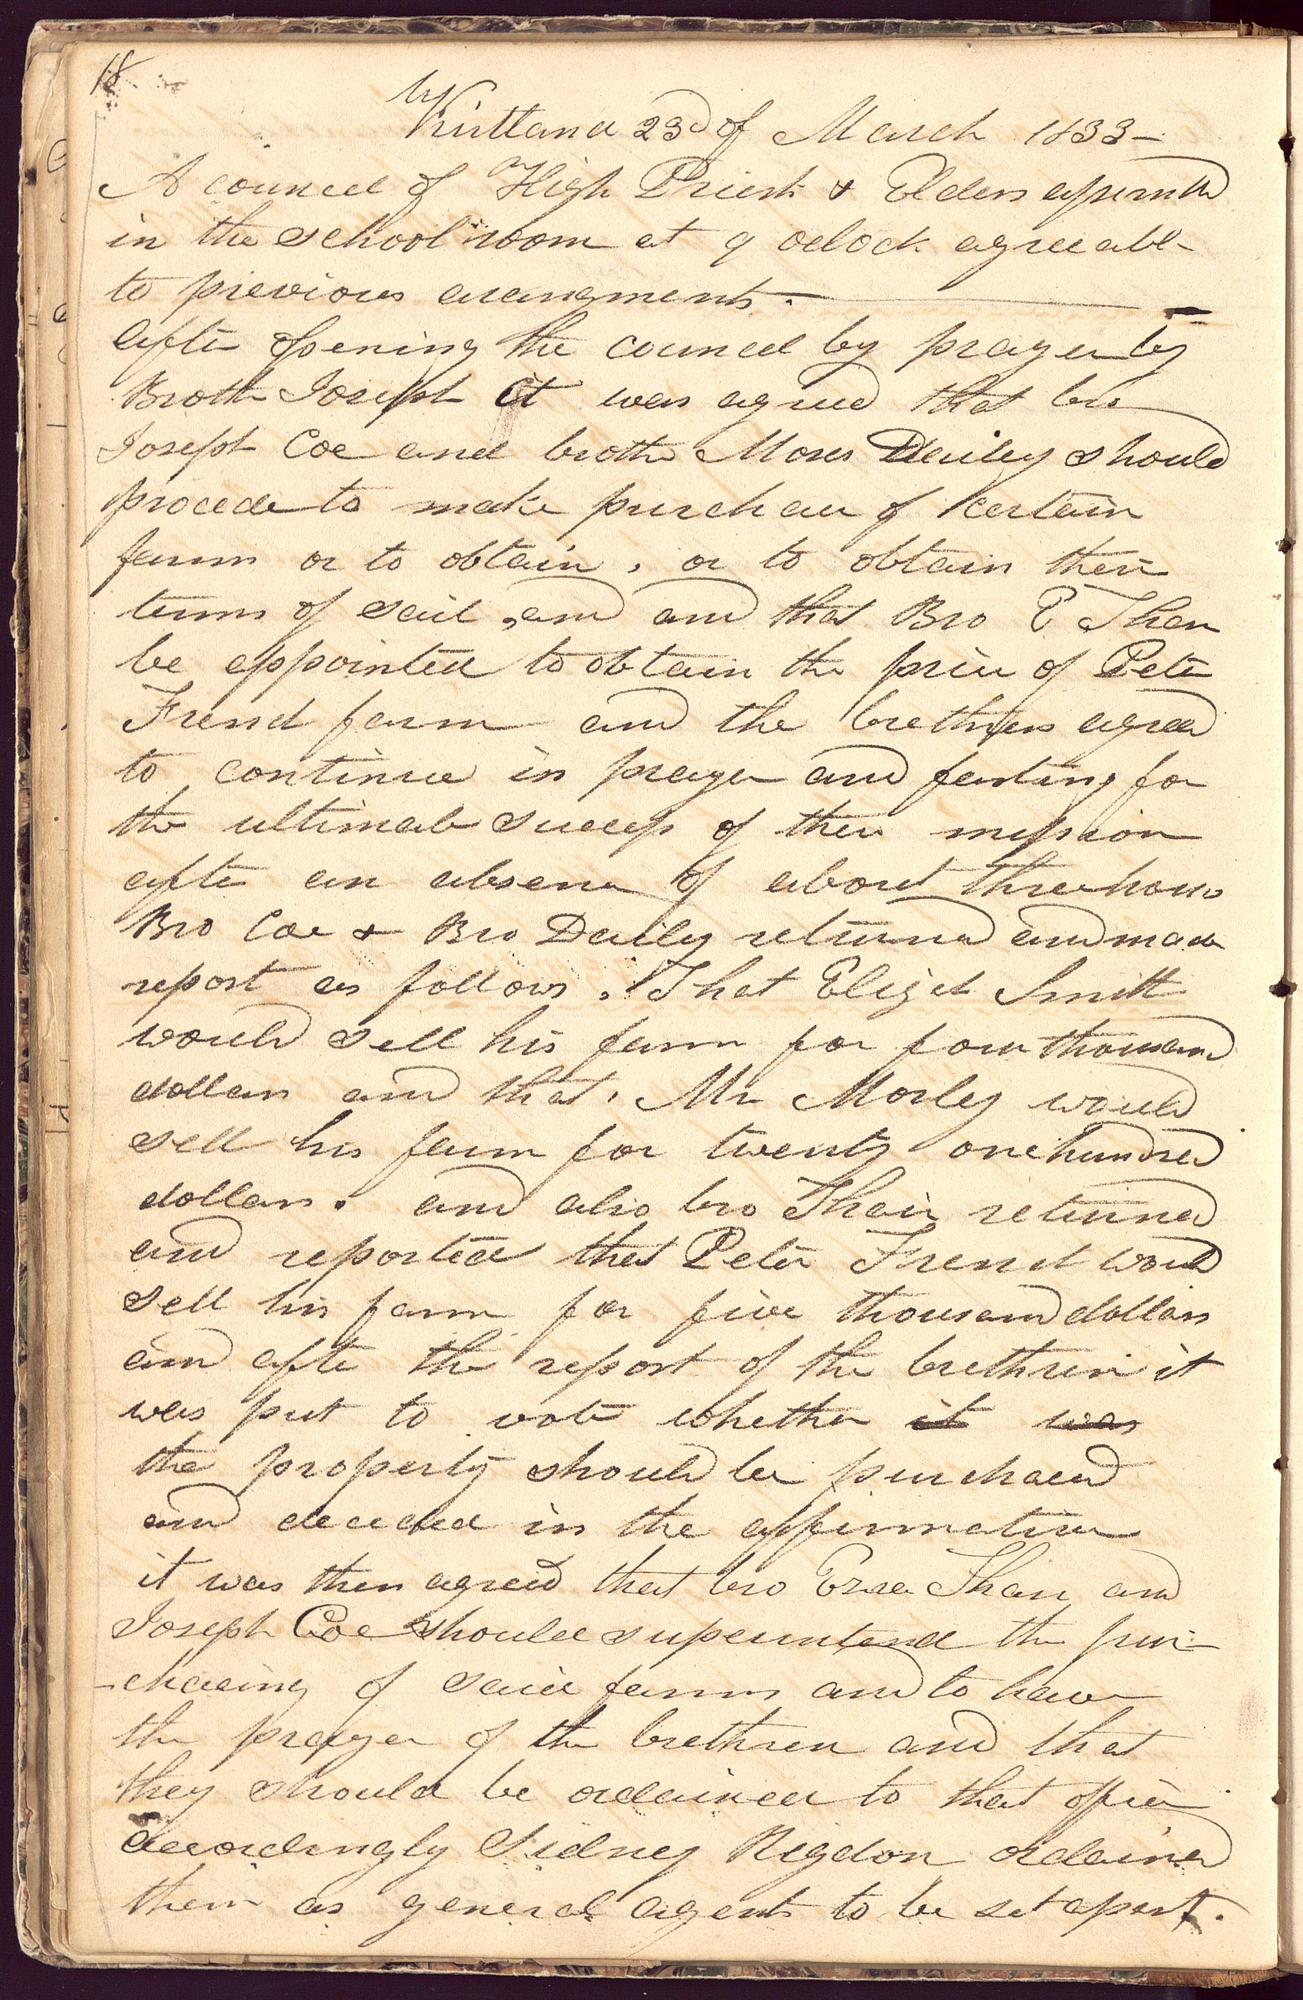 18
Kirtland 23d of March 1833—
A council of High Priests & Elders assembled
in the school room at 9 oclock agreeabl
to previous arangments.
after opening the council by prayer by
Broth Joseph it was agreed that bro
Joseph Coe and brothe Moses Dailey should
procede to make purchase of certain
farms or to obtain, or to obtain their
terms of sail, and and that Bro E Thair
be appointed to obtain the price of Peter
Frend farm and the brethren agreed
to continue in prayer and fasting for
the ultimate success of their mission
after an absence of about three hours
Bro Coe & Bro Daily returned and made
report as follows, That Elijah Smith
would sell his farm for four thousand
dollars and that, Mr Morley would
sell his farm for twenty one hundred
dollars. and also bro Thair returned
and reported that Peter Frend would
sell his farm for five thousand dollars
and after the report of the brethren it
was put to vote whether it was
the property should be purchased
and decided in the affirmative
it was then agreed that bro Ezra Thair and
Joseph Coe should superintend the pur-
-chasing of said farms and to have
the prayer of the brethren and that
they should be ordained to that office
accordingly Sidney Rigdon ordained
them as general agents to be set apart.